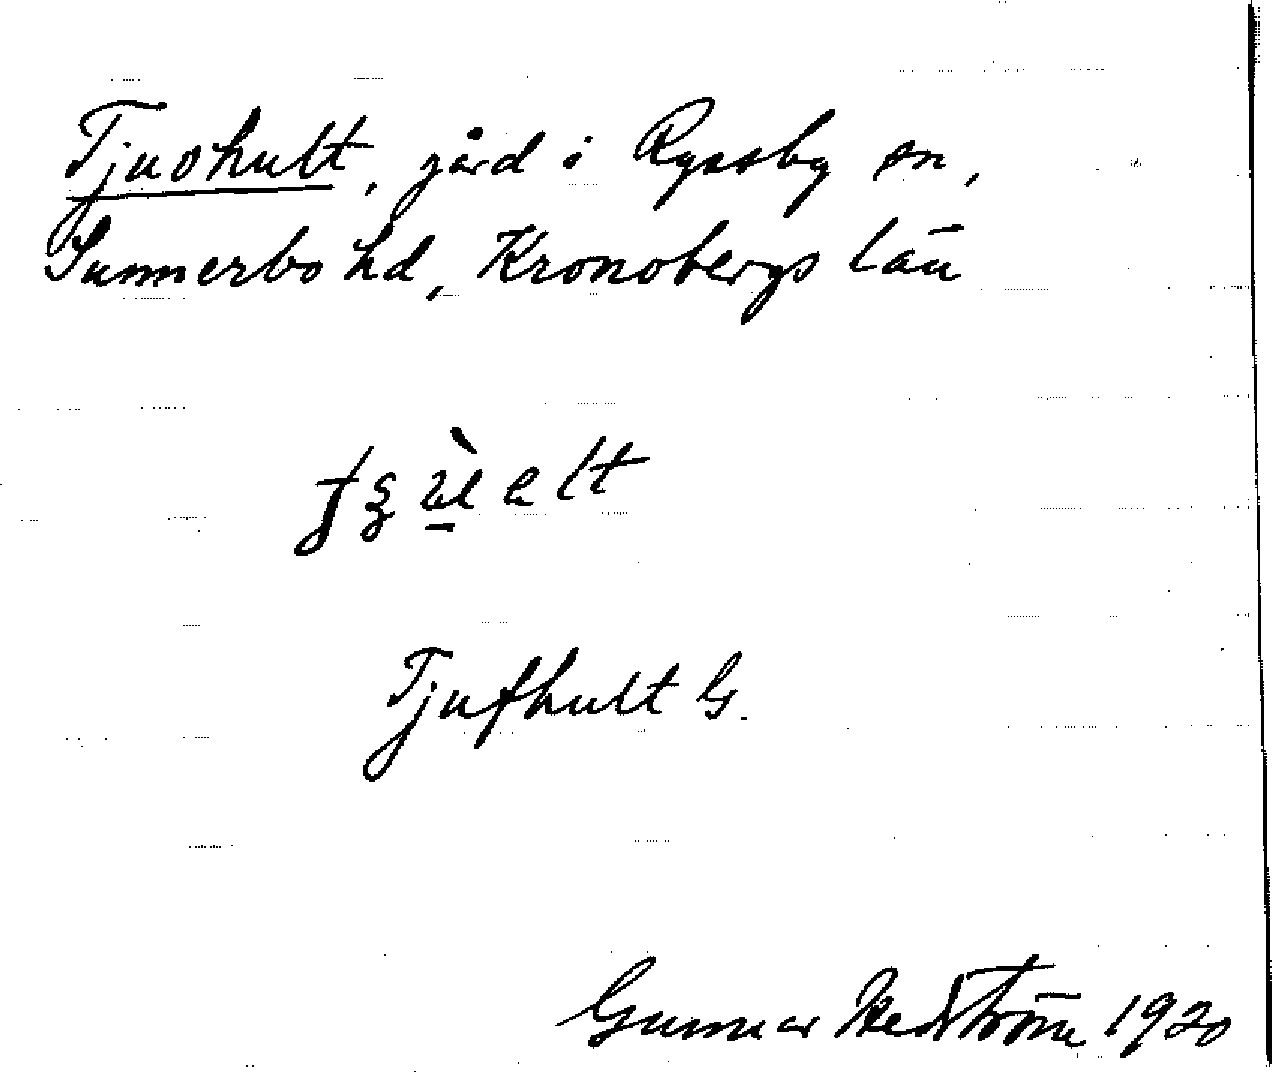 Tjushult, gård i Ryssby sn,
Sunnerbo hd, Kronobergs län
Tjufhult G.
Gunnar Hedström 1920